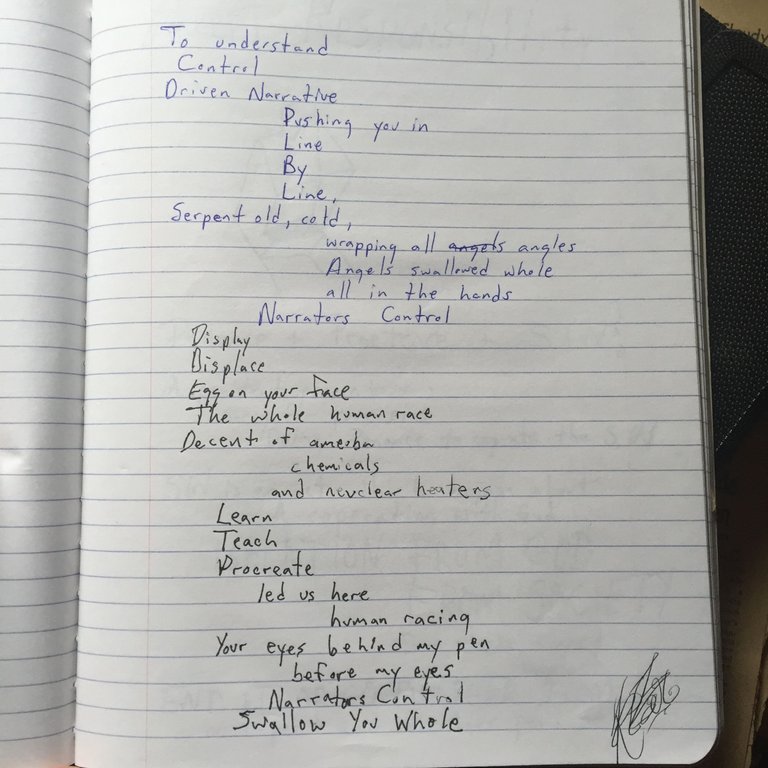 To understand
Control
Driven Narrative
Pushing you in
Line
By
Line,
Serpent old, cold,
wrapping all angels angles
Angels swallowed whole
all in the hands
Narrators Control
Display
Displace
Egg on your face
The whole human race
Decent of ameoba
chemicals
and nuclear heaters
Learn
Teach
Procreate
led us here
human racing
Your eyes behind my pen
before my eyes
Narrators Control
Swallow You Whole